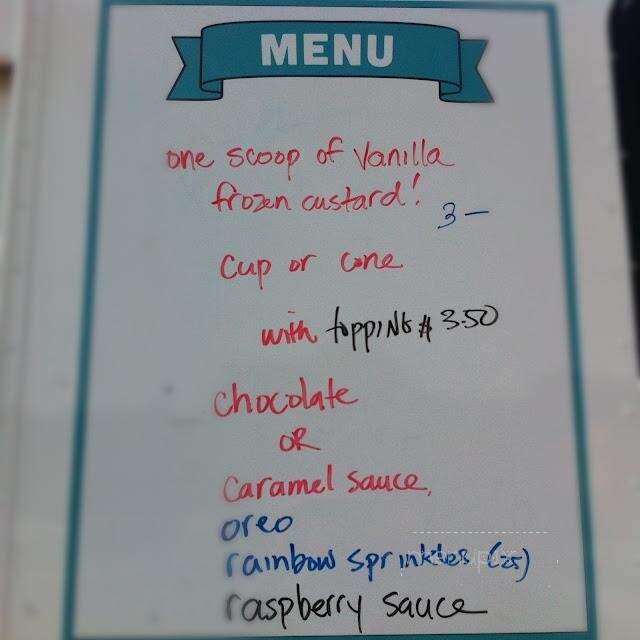 MENU
one scoop of vanilla
frozen custard!
3 —
cup or cone
with topping # 3.50
chocolate
OR
caramel sauce,
oreo
rainbow sprinkles (25)
raspberry sauce